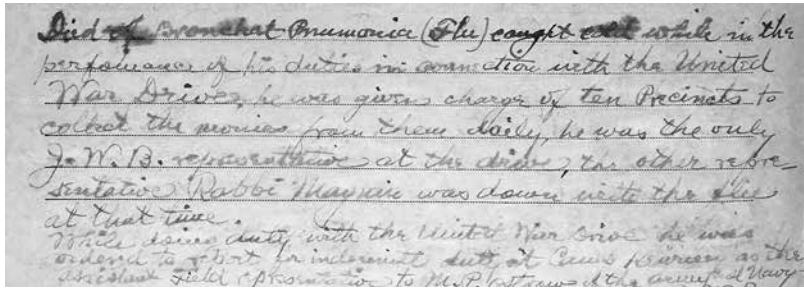 Died of Bronchal Pnumonia (Flu) caught cold while in the
perfomance of his duties in connection with the United
War Drive, he was given charge of ten Precincts to
collect the monies from them daily, he was the only
J.W.B. representative at the drive, the other repre-
sentative Rabbi was down with the flu
at that time.
While doing duty with the United War Drive he was
ordered to report for duty at Camp Kearney as the
assistant Field representative to M.P. of the army & Navy